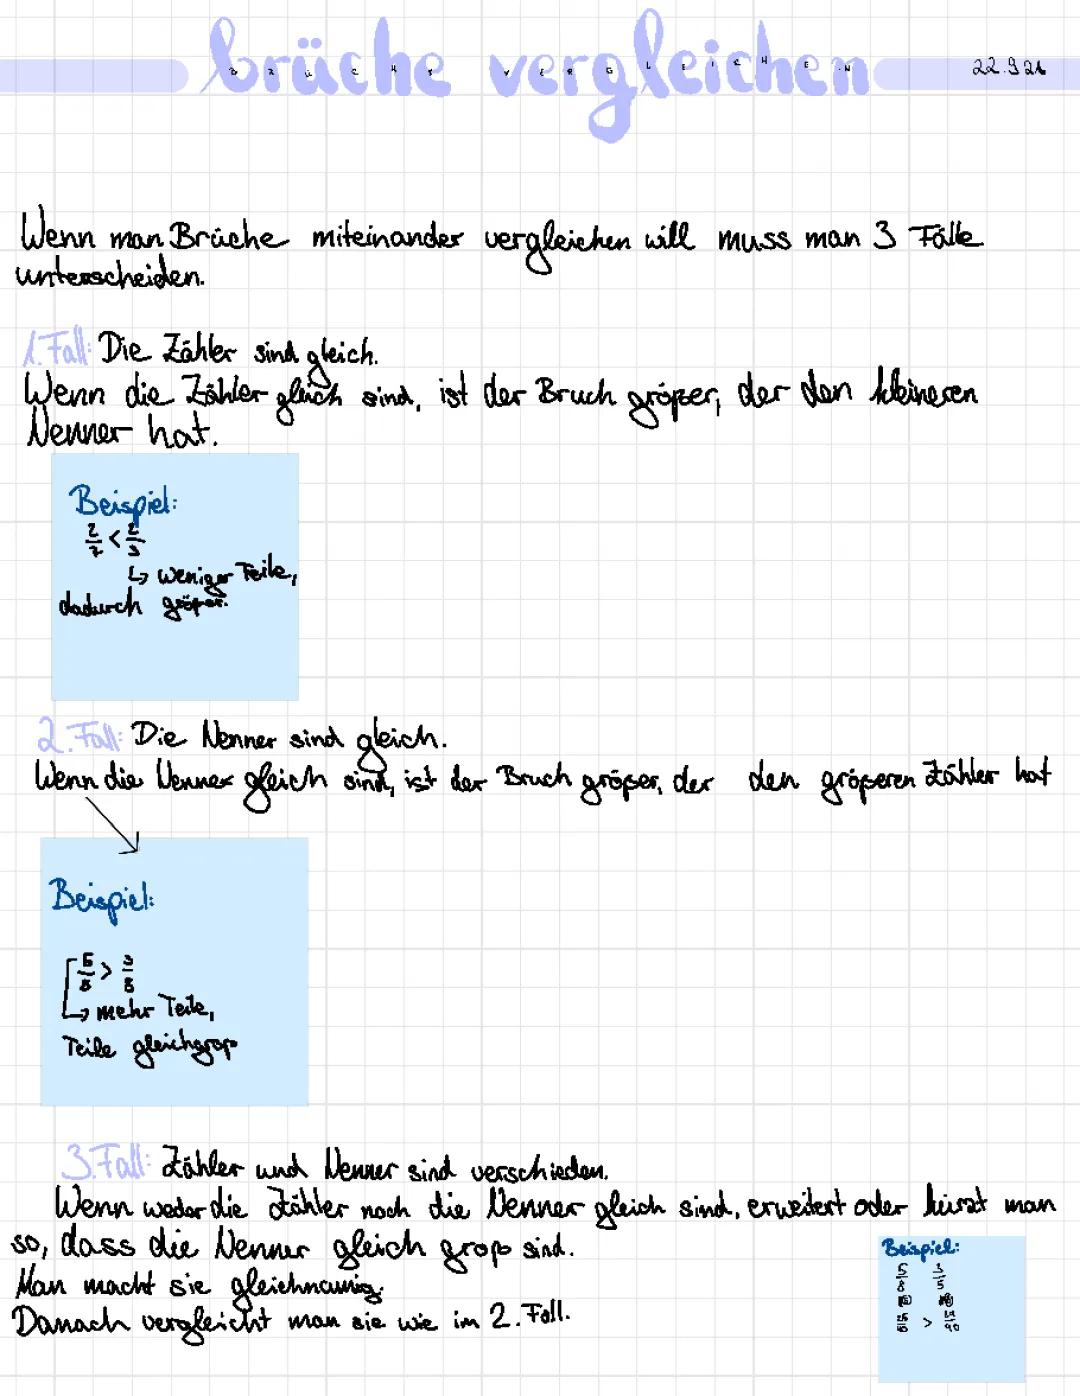 brüche vergleichen
BRÜCHE VERGLEICHEN
22.9.21
Wenn man Brüche miteinander vergleichen will muss man 3 Fälle
unterscheiden.
1. Fall: Die Zähler sind gleich.
Wenn die Zähler gleich sind, ist der Bruch größer, der den kleineren
Nenner hat.
Beispiel:
2/7 < 2/3
↳ weniger Teile,
dadurch größer.
2. Fall: Die Nenner sind gleich.
Wenn die Nenner gleich sind, ist der Bruch größer, der den größeren Zähler hat
Beispiel:
5/8 > 3/8
↳ mehr Teile,
Teile gleichgroß
3. Fall: Zähler und Nenner sind verschieden.
Wenn weder die Zähler noch die Nenner gleich sind, erweitert oder kürzt man
so, dass die Nenner gleich groß sind.
Man macht sie gleichnamig.
Danach vergleicht man sie wie im 2. Fall.
Beispiel: